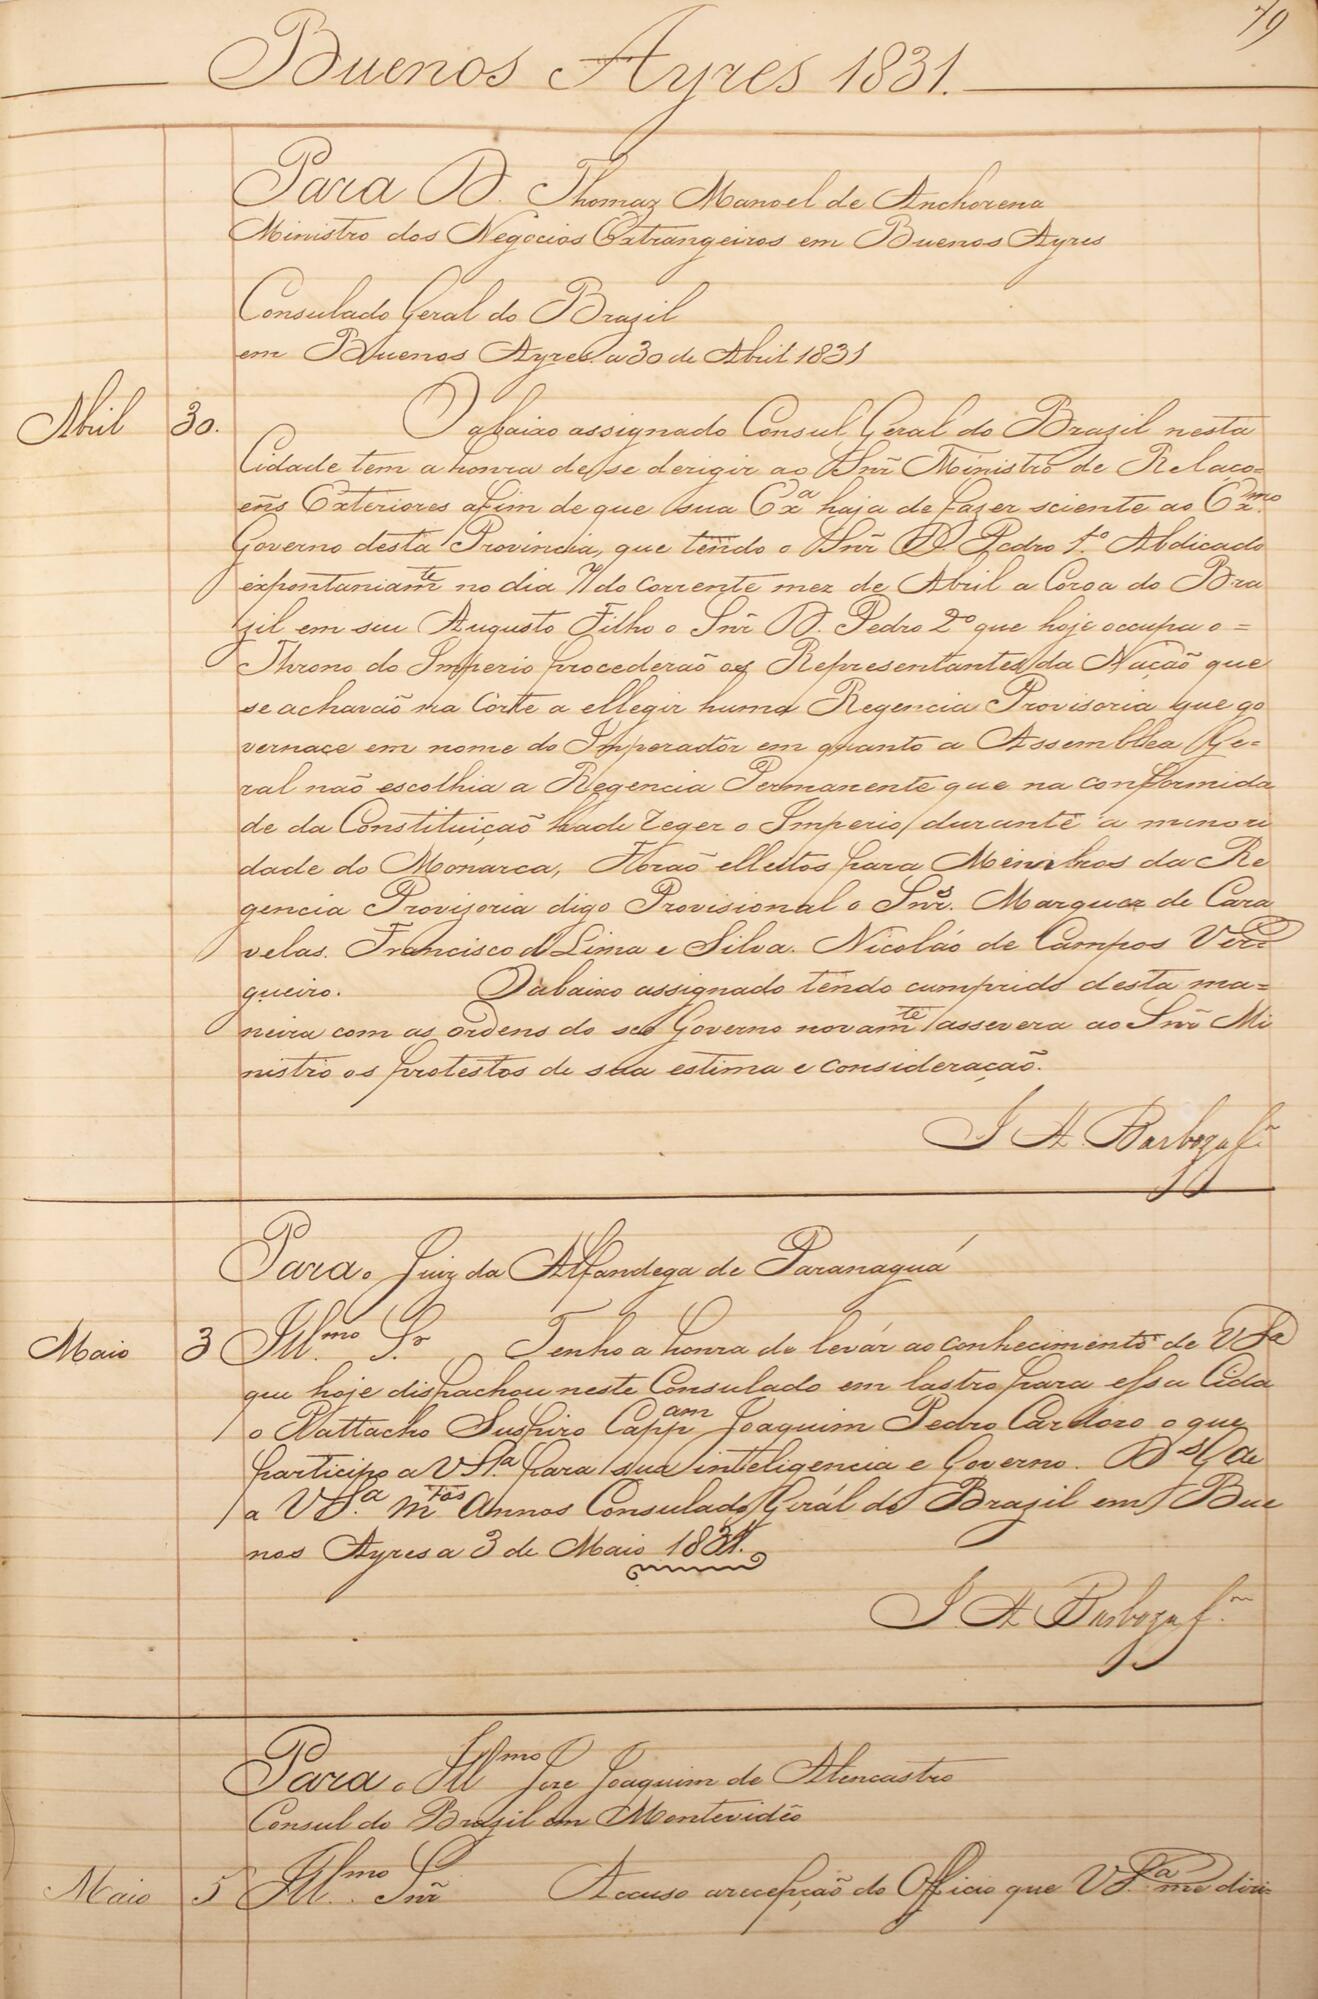 79
Buenos Ayres 1831.
Para D. Thomaz Manoel de Anchorena
Ministro dos Negocios Extrangeiros em Buenos Ayres
Consulado Geral do Brazil
em Buenos Ayres a 30 de Abril 1831
Abril 30. O abaixo assignado Consul Geral do Brazil nesta
Cidade tem a honra de se derigir ao Snr̃ Ministro de Relaço=
eñs Exteriores afim de que sua Exª haja de fazer sciente ao Exmo.
Governo desta Provincia, que tendo o Snr̃ D. Pedro 1.º Abdicado
expontaniamte no dia 7 do corrente mez de Abril a Coroa do Bra
zil em seu Augusto Filho o Snr̃ D. Pedro 2º que hoje occupa o =
Throno do Imperio procederaõ os Representantes da Naçaõ que
se achavaõ na Corte a ellegir huma Regencia Provisoria que go
vernaçe em nome do Imperadôr em quanto a Assemblea Ge=
ral naõ escolhia a Regencia Permanente que na conformida
de da Constituiçaõ hade reger o Imperio durante a menori
dade do Monarca, Foraõ elleitos para Menistros da Re
gencia Provizoria digo Provisional o Snrs. Marquez de Cara
velas. Francisco d Lima e Silva. Nicoláo de Campos Ver
gueiro. O abaixo assignado tendo cumprido desta ma=
neira com as ordens do seo Governo novamte assevera ao Snr̃ Mi
nistro os protestos de sua estima e consideraçaõ.
J A. Barboza fr̃
Para o Juiz da Alfandega de Paranaguá
Maio 3 Illmo. Sr. Tenho a honra de levár ao conhecimento de VSª
que hoje dispachou neste Consulado em lastro para essa Cida
o Pattacho Suspiro Cappam Joaquim Pedro Cardozo o que
participo a VSª. para sua inteligencia e Governo. Ds Ge
a VSª. mtos Annos Consulado Gerál do Brazil em Bue
nos Ayres a 3 de Maio 1831.
J. A Barboza f.
Para o Illmo Joze Joaquim de Alencastro
Consul do Brazil em Montevidéo
Maio 5 Illmo. Snr̃ Accuso a recepçaõ do Officio que VSª. me diri=